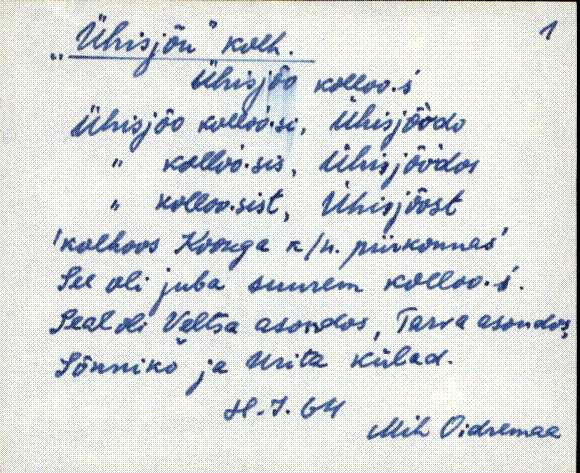 1
„Ühisjõu” kolh.
Ühisjõo kolloo·ś
Ühisjõo kolloo·si, Ühisjõòdo
" kolloo·sis, Ühisjõòdos
" kolloo·sist, Ühisjõost
'kolhoos Koonga k/n. piirkonnas'
See oli juba suurem kolloo·ś.
Seal oli Veltsa asondos, Tarva asondos,
Sõnniko ja Urita külad.
H. J. 64
Mih Oidremaa